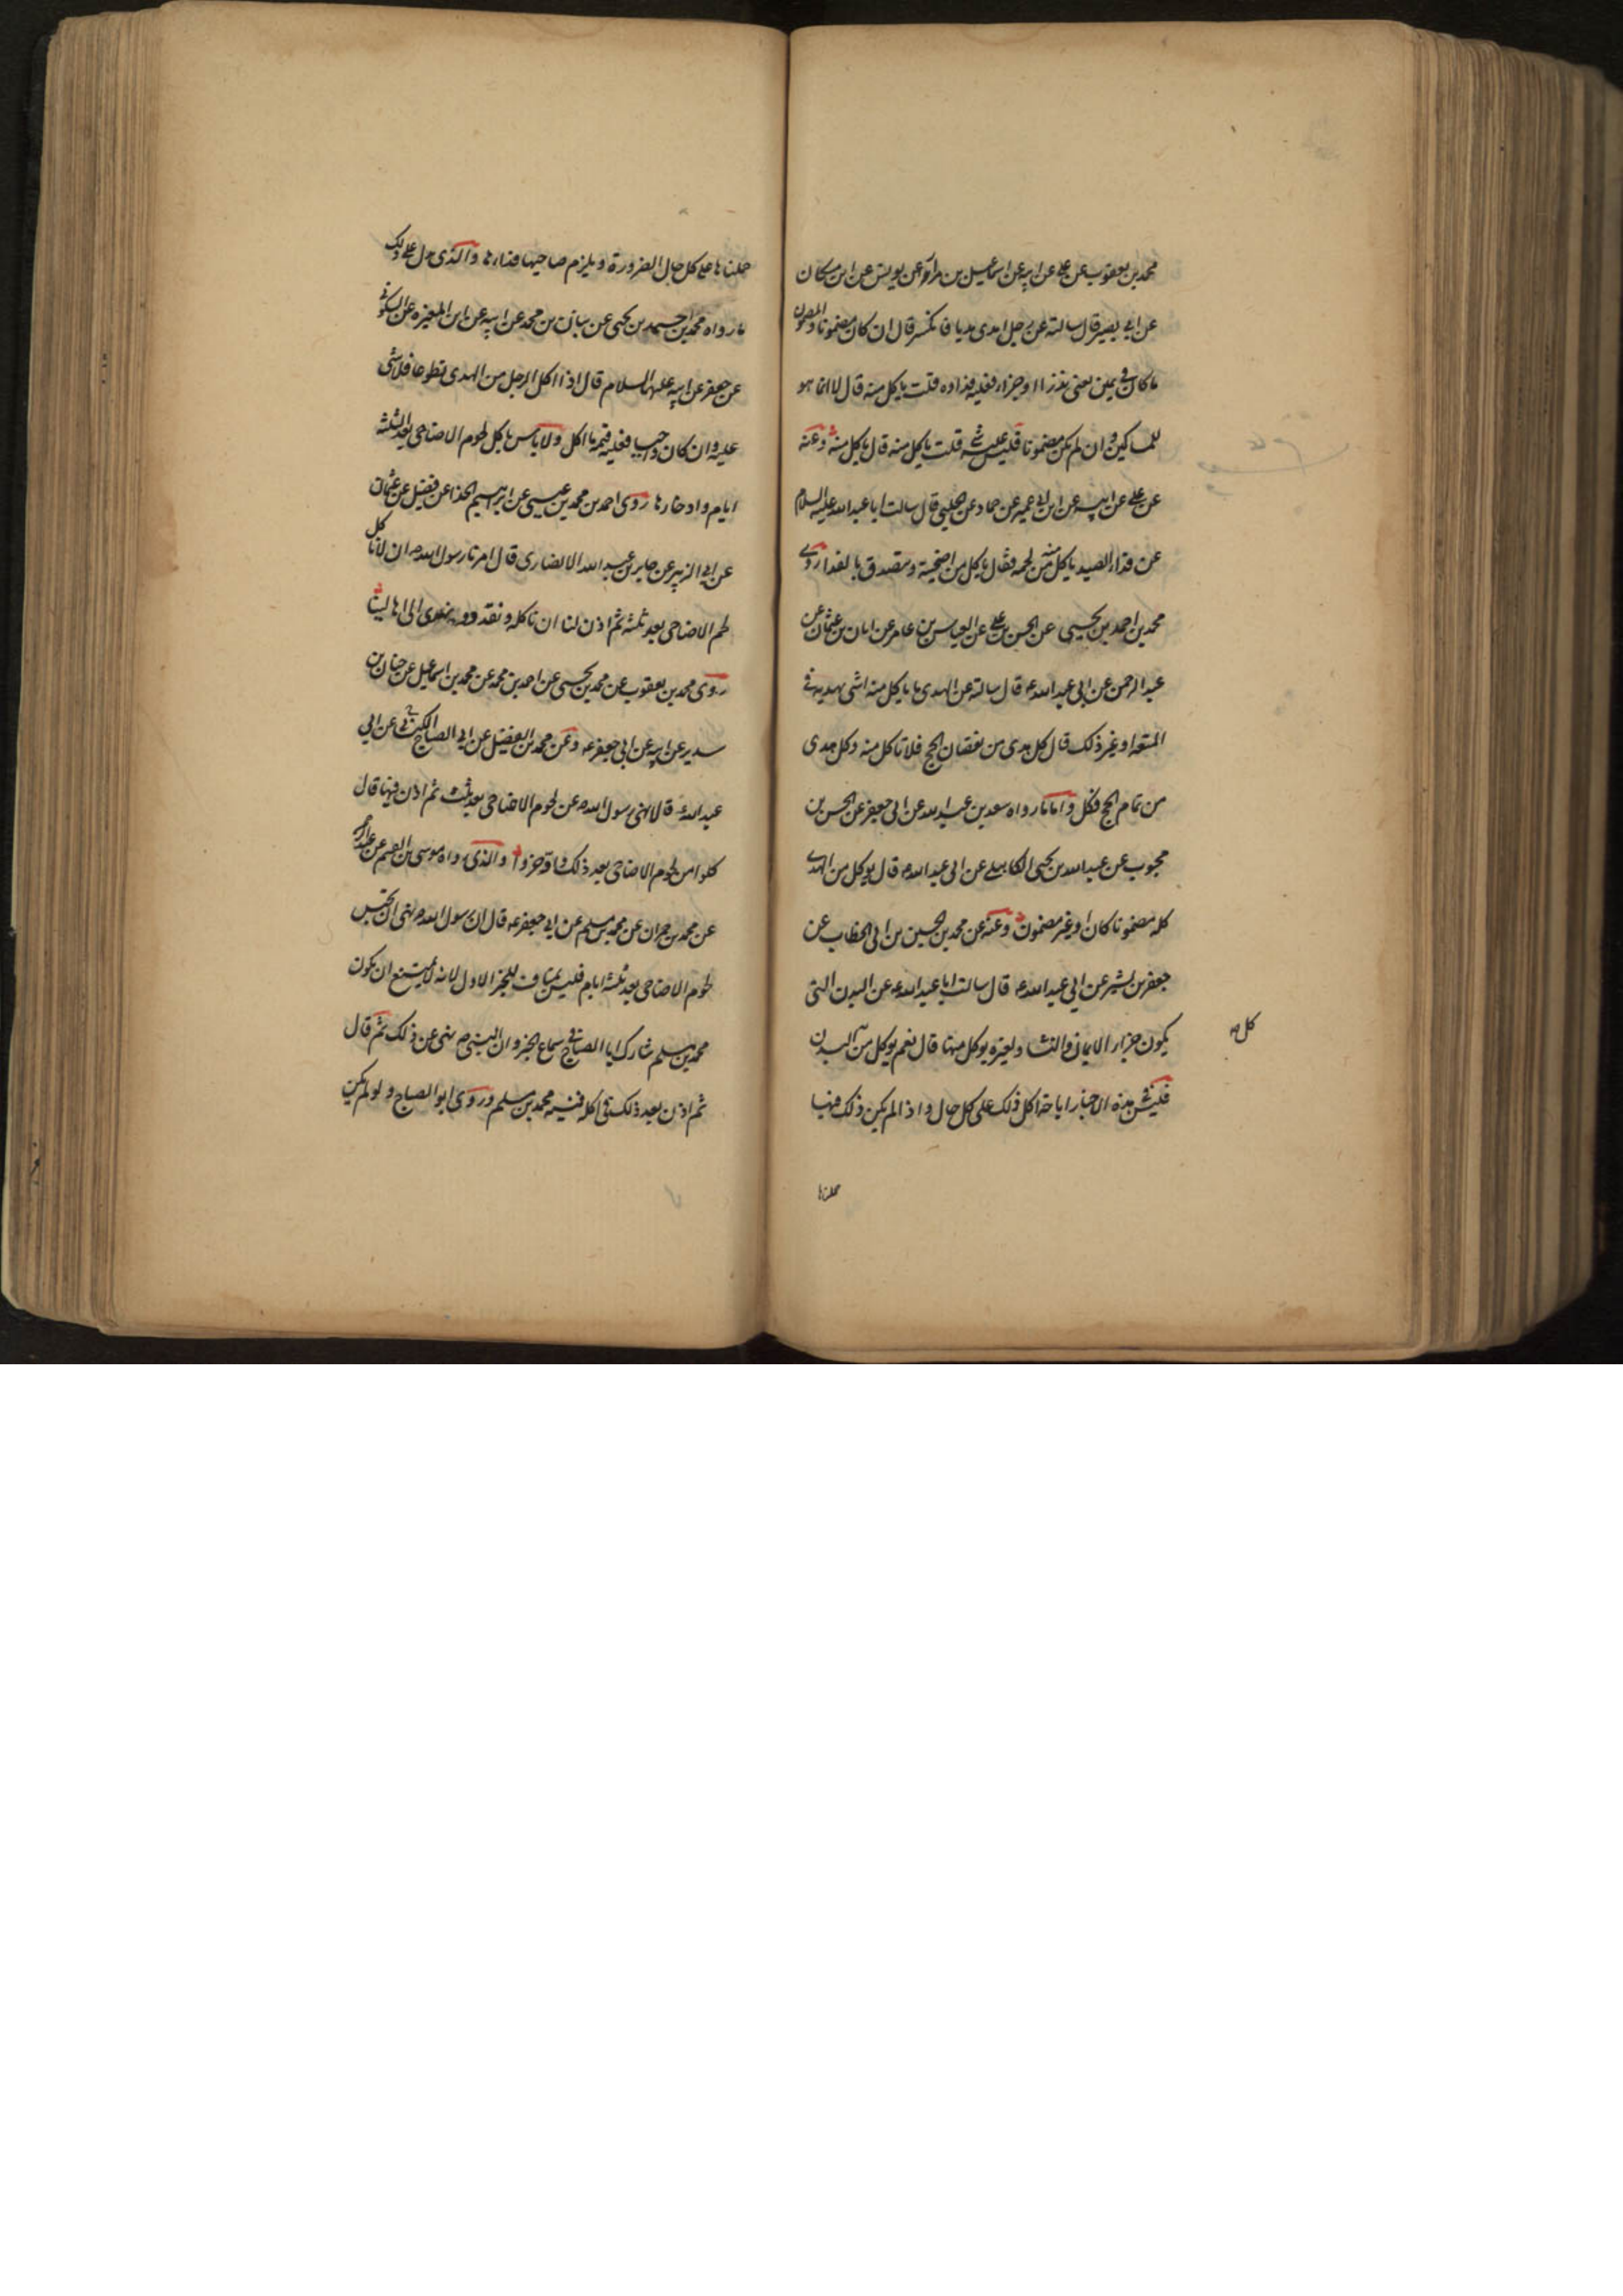 محمد بن يعقوب عن علي عن ابيه عن اسماعيل بن مرار عن يونس عن ابن مسكان
عن ابي بصير قال سالته عن رجل اهدى هديا فانكسر قال ان كان مضمونا والمضمون
ما كان في يمين يعني نذرا او جزاء فعليه فداوه قلت ياكل منه قال لا انما هو
للمساكين وان لم يكن مضمونا فليس عليه شي قلت ياكل منه قال ياكل منه وعنه
عن علي عن ابيه عن ابن ابي عمير عن حماد عن الحلبي قال سالت ابا عبد الله عليه السلام
عن فداء الصيد ياكل منه من لحمه فقال ياكل من اضحيته ويتصدق بالفداء روى
محمد بن احمد بن يحيى عن الحسن بن علي عن العباس بن عامر عن ابان بن عثمان عن
عبد الرحمن عن ابي عبد الله ع قال سالته عن الهدى ما ياكل منه اشي يهديه في
المتعه او غير ذلك قال كل هدى من نقصان الحج فلا تاكل منه وكل هدى
من تمام الحج فكل واما ما رواه سعد بن عبد الله عن ابي جعفر عن الحسن بن
محبوب عن عبد الله بن يحيى الكاهلي عن ابي عبد الله ع قال يوكل من الهدى
كله مضمونا كان او غير مضمون وعنه عن محمد بن الحسين بن ابي الخطاب عن
جعفر بن بشير عن ابي عبد الله ع قال سالت ابا عبد الله ع عن البدن التي
يكون جزاء الايمان والنساء ولغيره يوكل منها قال نعم يوكل من البدن
كل ص
فليس في هذه الاخبار اباحة اكل ذلك على كل حال واذا لم يكن ذلك فيها
حملناها
حملناها على كل حال الضرورة ويلزم صاحبها فداءها والذى دل على ذلك
ما رواه محمد بن احمد بن يحيى عن بنان بن محمد عن ابيه عن ابن المغيره عن السكوني
عن جعفر عن ابيه عليهما السلام قال اذا اكل الرجل من الهدى تطوعا فلا شي
عليه وان كان واجبا فعليه قيمة ما اكل ولا باس باكل لحوم الاضاحي بعد الثلثه
ايام وادخارها روى احمد بن محمد بن عيسى عن ابرهيم الحذا عن فضيل عن عثمان
عن ابي الزبير عن جابر بن عبد الله الانصارى قال امرنا رسول الله ص ان لا ناكل
لحم الاضاحي بعد ثلثه ثم اذن لنا ان ناكله ونقدد ونهدى الى اهالينا
روى محمد بن يعقوب عن محمد بن يحيى عن احمد بن محمد عن محمد بن اسماعيل عن حنان بن
سدير عن ابيه عن ابي جعفر ع وعن محمد بن الفضيل عن ابي الصباح الكناني عن ابي
عبد الله ع قالا نهى رسول الله ص عن لحوم الاضاحي بعد ثلث ثم اذن فيها قال
كلوا من لحوم الاضاحي بعد ذلك وادخروا والذى رواه موسى بن القسم عن عبد الرحمن
عن محمد بن حمران عن محمد بن مسلم عن ابي جعفر ع قال ان رسول الله ص نهى ان تحبس
لحوم الاضاحي بعد ثلثه ايام فليس بمناف للخبر الاول لانه لا يمتنع ان يكون
محمد بن مسلم شارك ابا الصباح في سماع الخبر وان النبي ص نهى عن ذلك ثم قال
ثم اذن بعد ذلك في اكله فنسيه محمد بن مسلم وروى ابو الصباح ولو لم يكن